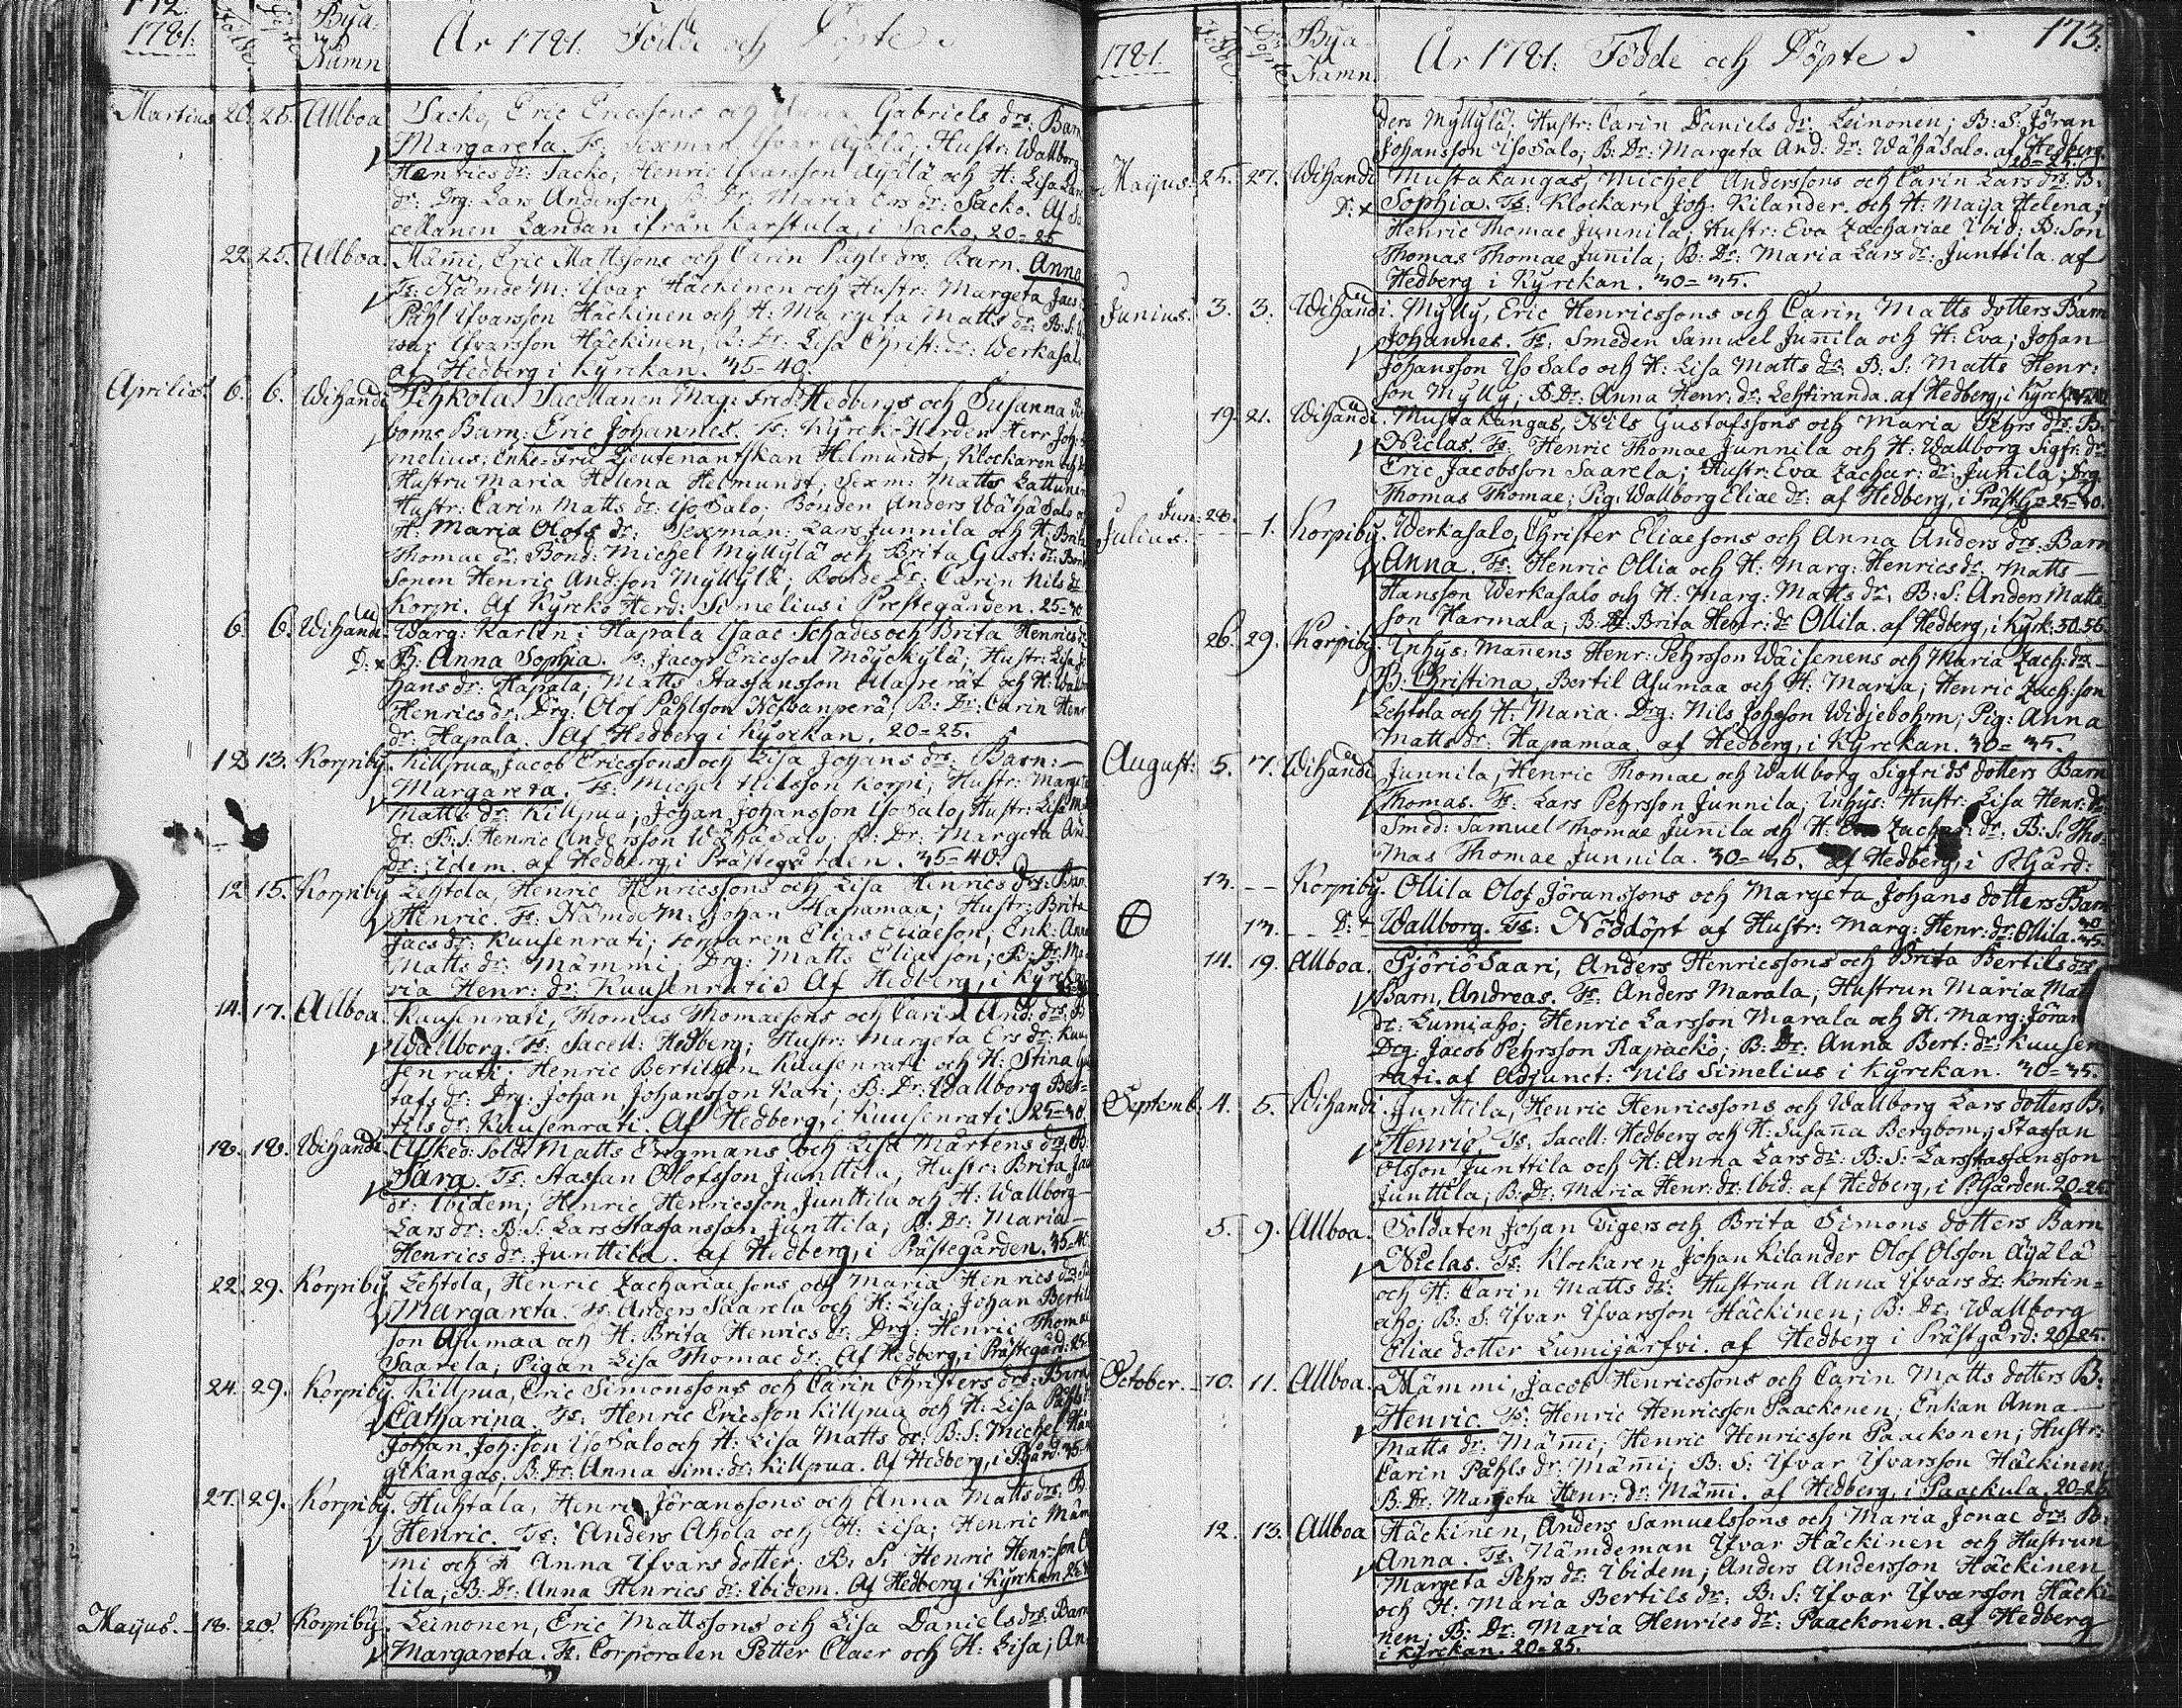 172.
1781. Födde Döpte Bya Namn År 1781. Födde och Döpte
Martius 20. 25. Allboa Sacko, Eric Ericssons och Anna Gabriels drs: Barn
Margareta. Ts: Sexman Ifvar Äyälä; Hustr: Wallborg
Henrics dr: Sacko; Henric Ifvarsson Äyälä och H: Lisa Lars
dr: Drg: Lars Andersson, B: Dr: Maria Ers dr: Sacko. Af Sa-
cellanen Landan ifrån Karstula, i Sacko. 20=25
22. 25. Allboa. Mämi, Eric Mattssons och Carin Påhls drs: Barn. Anna
Ts: Nämdem: Ifvar Häckinen och Hustr: Margeta Jacs
Påhl Ifvarsson Häckinen och H: Margeta Matts dr: B: S:
war Ifvarsson Häckinen, B: Dr: Lisa Christ: dr: Werkasalo
af Hedberg i Kyrckan. 35=40.
Aprilis. 6. 6. Wihandi Pihkola. Sacellanen Mag: Fred: Hedbergs och Susanna
boms Barn: Eric Johannes. Ts: Kyrcko Herden Herr Joh:
melius; Enke-Fru Lieutenantskan Helmundt, Klockaren och
Hustru Maria Helena Helmundt, Sexm: Matts Lattunen
Hustr: Carin Matts dr: Iso Salo; Bonden Anders Wähä Salo och
H: Maria Olofs dr: Sexman: Lars Junnila och H: Brita
Thomae dr: Bond: Michel Myllylä och Brita Gust: dr: Bond
sonen Henric And:son Myllylä; Bonde Dr: Carin Nils dr
Korpi. Af Kyrcko Herd: Simelius i Prestegården. 25=30
6. 6. Wihandi. Warg: Karlen i Hapala Isaac Schades och Brita Henrics
D: x B: Anna Sophia. Ts: Jacop Ericsson Möyckylä; Hustr: Lisa Jo
hans dr: Hapala; Matts Staffansson Alaperät och H: Wallb
Henrics dr: Drg: Olof Påhlsson Nessanperä, B: Dr: Carin Henr
dr: Hapala. Af Hedberg i Kyrckan. 20=25.
12. 13. Korpiby. Killpua, Jacob Ericssons och Lisa Johans drs: Barn:
Margareta. Ts: Michel Nilsson Korpi; Hustr: Margeta
Matts dr: Killpua; Johan Johansson Iso Salo, Hustr: Lisa M
dr: B: S: Henric Andersson Wähä Salo; B: Dr: Margeta And:
dr: Idem. af Hedberg i Prästegården. 35=40.
12. 15. Korpiby Lehtola, Henric Henricssons och Lisa Henrics drs: Barn
Henric. Ts: Nämdem: Johan Hapamaa; Hustr: Brita
Jacs dr: Kuusenrati; Torparen Elias Eliaeson; Enk: Anna
Matts dr: Mämmi. Drg: Matts Eliaeson; B: Dr: Ma
ria Henr: dr: Kuusenrati. Af Hedberg, i Kyrckan
14. 17. Allboa. Kuusenrati, Thomas Thomaesons och Carin And: drs: B
Wallborg. Ts: Sacell: Hedberg; Hustr: Margeta Ers dr: Kuu
senrati. Henric Bertilsson Kuusenrati och H: Stina Gus
tafs dr: Drg: Johan Johansson Kati; B: Dr: Wallborg Ber-
tils dr: Kuusenrati. Af Hedberg, i Kuusenrati. 25=30
18. 18. Wihandi. Afsked: Sold: Matts Engmans och Lisa Mårtens drs: B:
Sara. Ts: Staffan Olofsson Junttila, Hustr: Brita Jac
dr: Ibidem; Henric Henricsson Junttila och H: Wallborg
Lars dr: B: S: Lars Staffansson Junttila, B: Dr: Maria
Henrics dr: Junttila. af Hedberg, i Prästegården. 35=40
22. 29. Korpiby. Lehtola, Henric Zachariaesons och Maria Henrics drs: B
Margareta. Ts: Anders Saarela och H: Lisa; Johan Bertil
son Asumaa och H: Brita Henrics dr: Drg: Henric Thomae
Saarela; Pigan Lisa Thomae dr: Af Hedberg, i Prästegård: 25=
24. 29. Korpiby. Killpua, Eric Simonssons och Carin Christers drs: Barn
Catharina. Ts: Henric Ericsson Killpua och H: Lisa Påhls
Johan Joh:son Iso Salo och H: Lisa Matts dr: B: S: Michel Hän
gikangas, B: Dr: Anna Sim: dr: Killpua. Af Hedberg, i P:gård: 35=
27. 29. Korpiby. Huhtala, Henric Jöranssons och Anna Matts drs: B
Henric. Ts: Anders Ahola och H: Lisa; Henric Mäm
mi och H: Anna Ifvars dotter. B: S: Henric Henr:son Ol
lila; B: Dr: Anna Henrics dr: Ibidem. Af Hedberg i Kyrckan. 25=
Maijus. 18. 20. Korpiby. Leinonen, Eric Mattssons och Lisa Daniels drs: Barn
Margareta. Ts: Corporalen Petter Claer och H: Lisa; An-
173.
1781. Födde Döpte Bya Namn År 1781. Födde och Döpte
ders Myllylä; Hustr: Carin Daniels dr: Leinonen; B: S: Jöran
Johansson Iso Salo; B: Dr: Margeta And: dr: Wähä Salo. af Hedberg.
20=25.
Maijus. 25. 27. Wihandi Mustakangas, Michel Anderssons och Carin Lars drs: B.
D: x Sophia. Ts: Klockarn Joh: Kilander. och H: Maija Helena;
Henric Thomae Junnila; Hustr: Eva Zachariae Ibid; B: Son
Thomas Thomae Junila; B: Dr: Maria Lars dr: Junttila. af
Hedberg i Kyrckan. 30=35.
Junius. 3. 3. Wihandi. Mylly, Eric Henricssons och Carin Matts dotters Barn
Johannes. Ts: Smeden Samuel Junila och H: Eva; Johan
Johansson Iso Salo och H: Lisa Matts dr: B: S: Matts Henr:
son Mylly; B: Dr: Anna Henr: dr: Lehtiranda. af Hedberg, i Kyrck:
19. 21. Wihandi. Mustakangas, Nils Gustafssons och Maria Pehrs drs: B.
Niclas. Ts: Henric Thomae Junnila och H: Wallborg Sigfr: dr:
Eric Jacobsson Saarela; Hustr: Eva Zachar: dr: Junila; Drg:
Thomas Thomae; Pig: Wallborg Eliae dr: af Hedberg, i Prästg: 25=30.
Jun: 28.
Julius. 1. Korpiby. Werkasalo, Christer Eliaesons och Anna Anders drs: Barn
Anna. Ts: Henric Ollia och H: Marg: Henrics dr: Matts
Hansson Werkasalo och H: Marg: Matts dr: B: S: Anders Matts
son Harmala; B: Dr: Brita Henr: dr: Ollila. af Hedberg, i Kyrk: 50.55.
26. 29. Korpiby. Inhys: Mannens Henr: Pehrsson Wäisenens och Maria Zach: drs
B: Christina, Bertil Asumaa och H: Maria; Henric Zach:son
Lehtola och H: Maria. Drg: Nils Johsson Widjebohm; Pig: Anna
Matts dr: Hapamaa. af Hedberg, i Kyrckan. 30=35.
August: 5. 7. Wihandi. Junnila, Henric Thomae och Wallborg Sigfrids dotters Barn
Thomas. Ts: Lars Pehrsson Junnila; Inhys: Hustr: Lisa Henr: dr:
Smed: Samuel Thomae Junila och H: Eva Zachar: dr: B: S: Tho-
mas Thomae Junnila. 30=35. af Hedberg, i P:Gård:
13. Korpiby. Ollila Olof Jöranssons och Margeta Johans dotters Barn
13. D: † Wallborg. Ts: Nöddöpt af Hustr: Marg: Henr: dr: Ollila. 30=35.
14. 19. Allboa. Pjöriösaari, Anders Henricssons och Brita Bertils drs
Barn, Andreas. Ts: Anders Marala; Hustrun Maria Matts
dr: Lumiaho; Henric Larsson Marala och H. Marg: Jörans
Drg: Jacob Pehrsson Rapacko; B: Dr: Anna Bert: dr: Kuusen
rati. af Adjunct: Nils Simelius i Kyrckan. 30=35.
Septemb: 4. 5. Wihandi. Junttila, Henric Henricssons och Wallborg Lars dotters B.
Henric. Ts: Sacell: Hedberg och H: Susanna Bergbom; Staffan
Olsson Junttila och H: Anna Lars dr: B: S: Lars Staffansson
Junttila; B: Dr: Maria Henr: dr: Ibid: af Hedberg, i P:Gården. 20=25.
5. 9. Allboa. Soldaten Johan Tigers och Brita Simons dotters Barn
Niclas. Ts: Klockaren Johan Kilander Olof Olsson Äyälä
och H: Carin Matts dr: Hustrun Anna Ifvars dr: Kontin=
aho; B: S: Ifvar Ifvarsson Häckinen; B: Dr: Wallborg
Eliae dotter Lumijärfvi. af Hedberg i Prästgård: 20=25.
October. 10. 11. Allboa. Mämmi, Jacob Henricssons och Carin Matts dotters B.
Henric. Ts: Henric Henricsson Paackonen; Enkan Anna
Matts dr: Mämi; Henric Henricsson Paackonen; Hustr:
Carin Påhls dr: Mämi; B: S: Ifvar Ifvarsson Häckinen
B: Dr: Margeta Henr: dr: Mämi. af Hedberg, i Paackula. 20=25
12. 13. Allboa Häckinen, Anders Samuelssons och Maria Jonae drs: B.
Anna. Ts: Nämdeman Ifvar Häckinen och Hustrun
Margeta Pehrs dr: Ibidem; Anders Andersson Häckinen
och H: Maria Bertils dr: B: S: Ifvar Ifvarsson Häcki
nen; B: Dr: Maria Henrics dr: Paackonen. af Hedberg
i Kyrckan. 20=25.